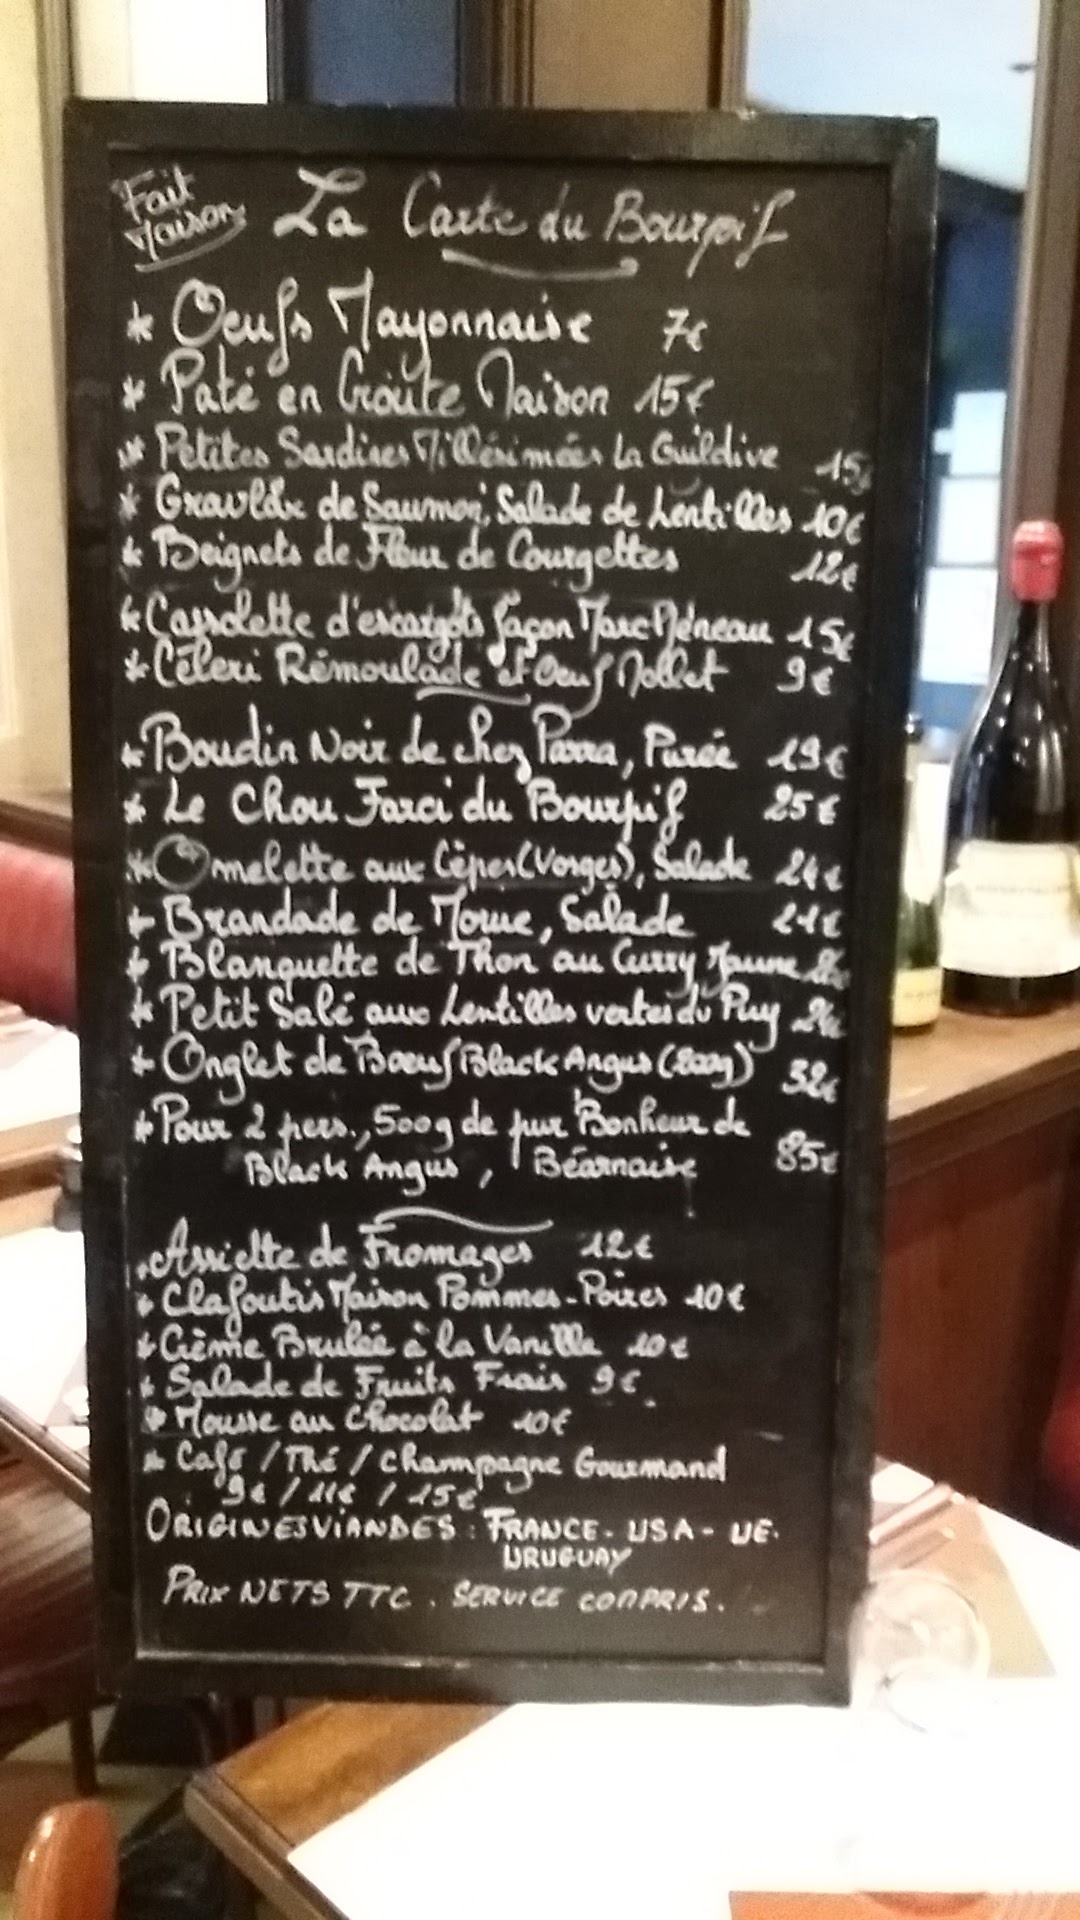 Fait
Maison
La Carte du Bourpif
* Oeufs Mayonnaise 7€
* Paté en Croûte Maison 15€
* Petites Sardines Millésimées La Guildive 15€
* Gravlax de Saumon, Salade de Lentilles 10€
* Beignets de Fleur de Courgettes 12€
* Cassolette d'escargots façon Marc Méneau 15€
* Céleri Rémoulade et Oeuf Mollet 9€
* Boudin Noir de chez Parra, Purée 19€
* Le Chou Farci du Bourpif 25€
* Omelette aux Cèpes (Vosges), Salade 24€
* Brandade de Morue, Salade 21€
* Blanquette de Thon au Curry Jaune
* Petit Salé aux Lentilles vertes du Puy
* Onglet de Boeuf Black Angus (200g) 32€
* Pour 2 pers., 500g de pur Bonheur de
Black Angus, Béarnaise 85€
* Assiette de Fromages 12€
* Clafoutis Maison Pommes-Poires 10€
* Crème Brulée à la Vanille 10€
* Salade de Fruits Frais 9€
* Mousse au Chocolat 10€
* Café / Thé / Champagne Gourmand
9€ / 11€ / 15€
ORIGINES VIANDES : FRANCE - USA - UE -
URUGUAY
PRIX NETS TTC. SERVICE COMPRIS.